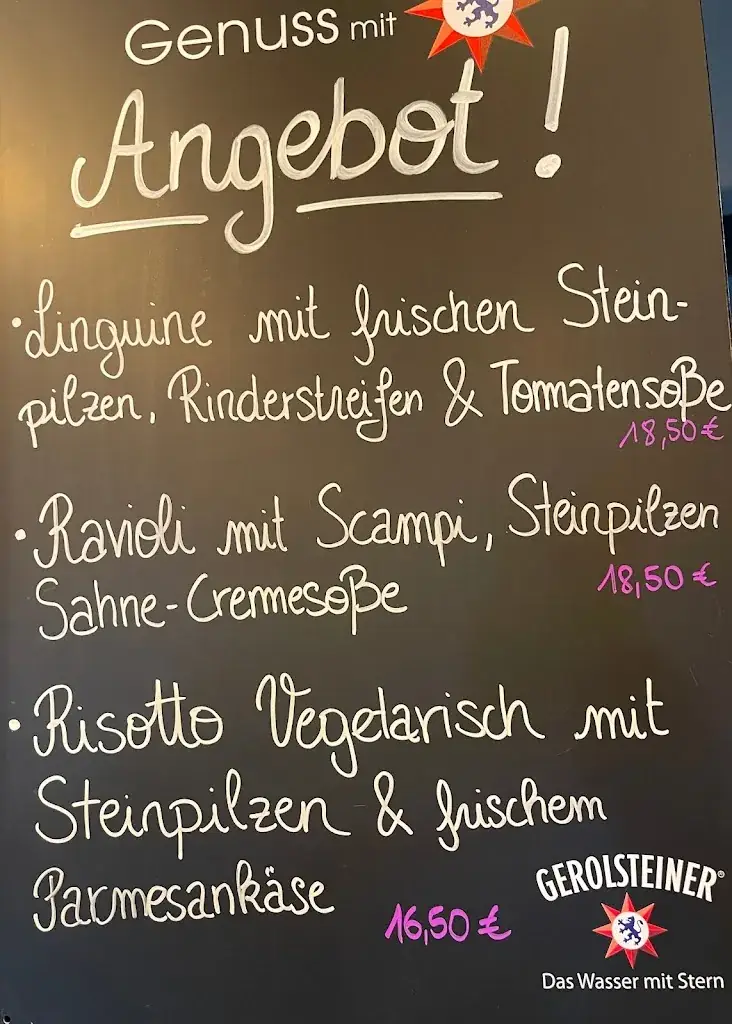 Genuss mit
Angebot!
• Linguine mit frischen Stein-
pilzen, Rinderstreifen & Tomatensoße
18,50 €
• Ravioli mit Scampi, Steinpilzen
Sahne-Cremesoße
18,50 €
• Risotto Vegetarisch mit
Steinpilzen & frischem
Parmesankäse
16,50 €
GEROLSTEINER®
Das Wasser mit Stern